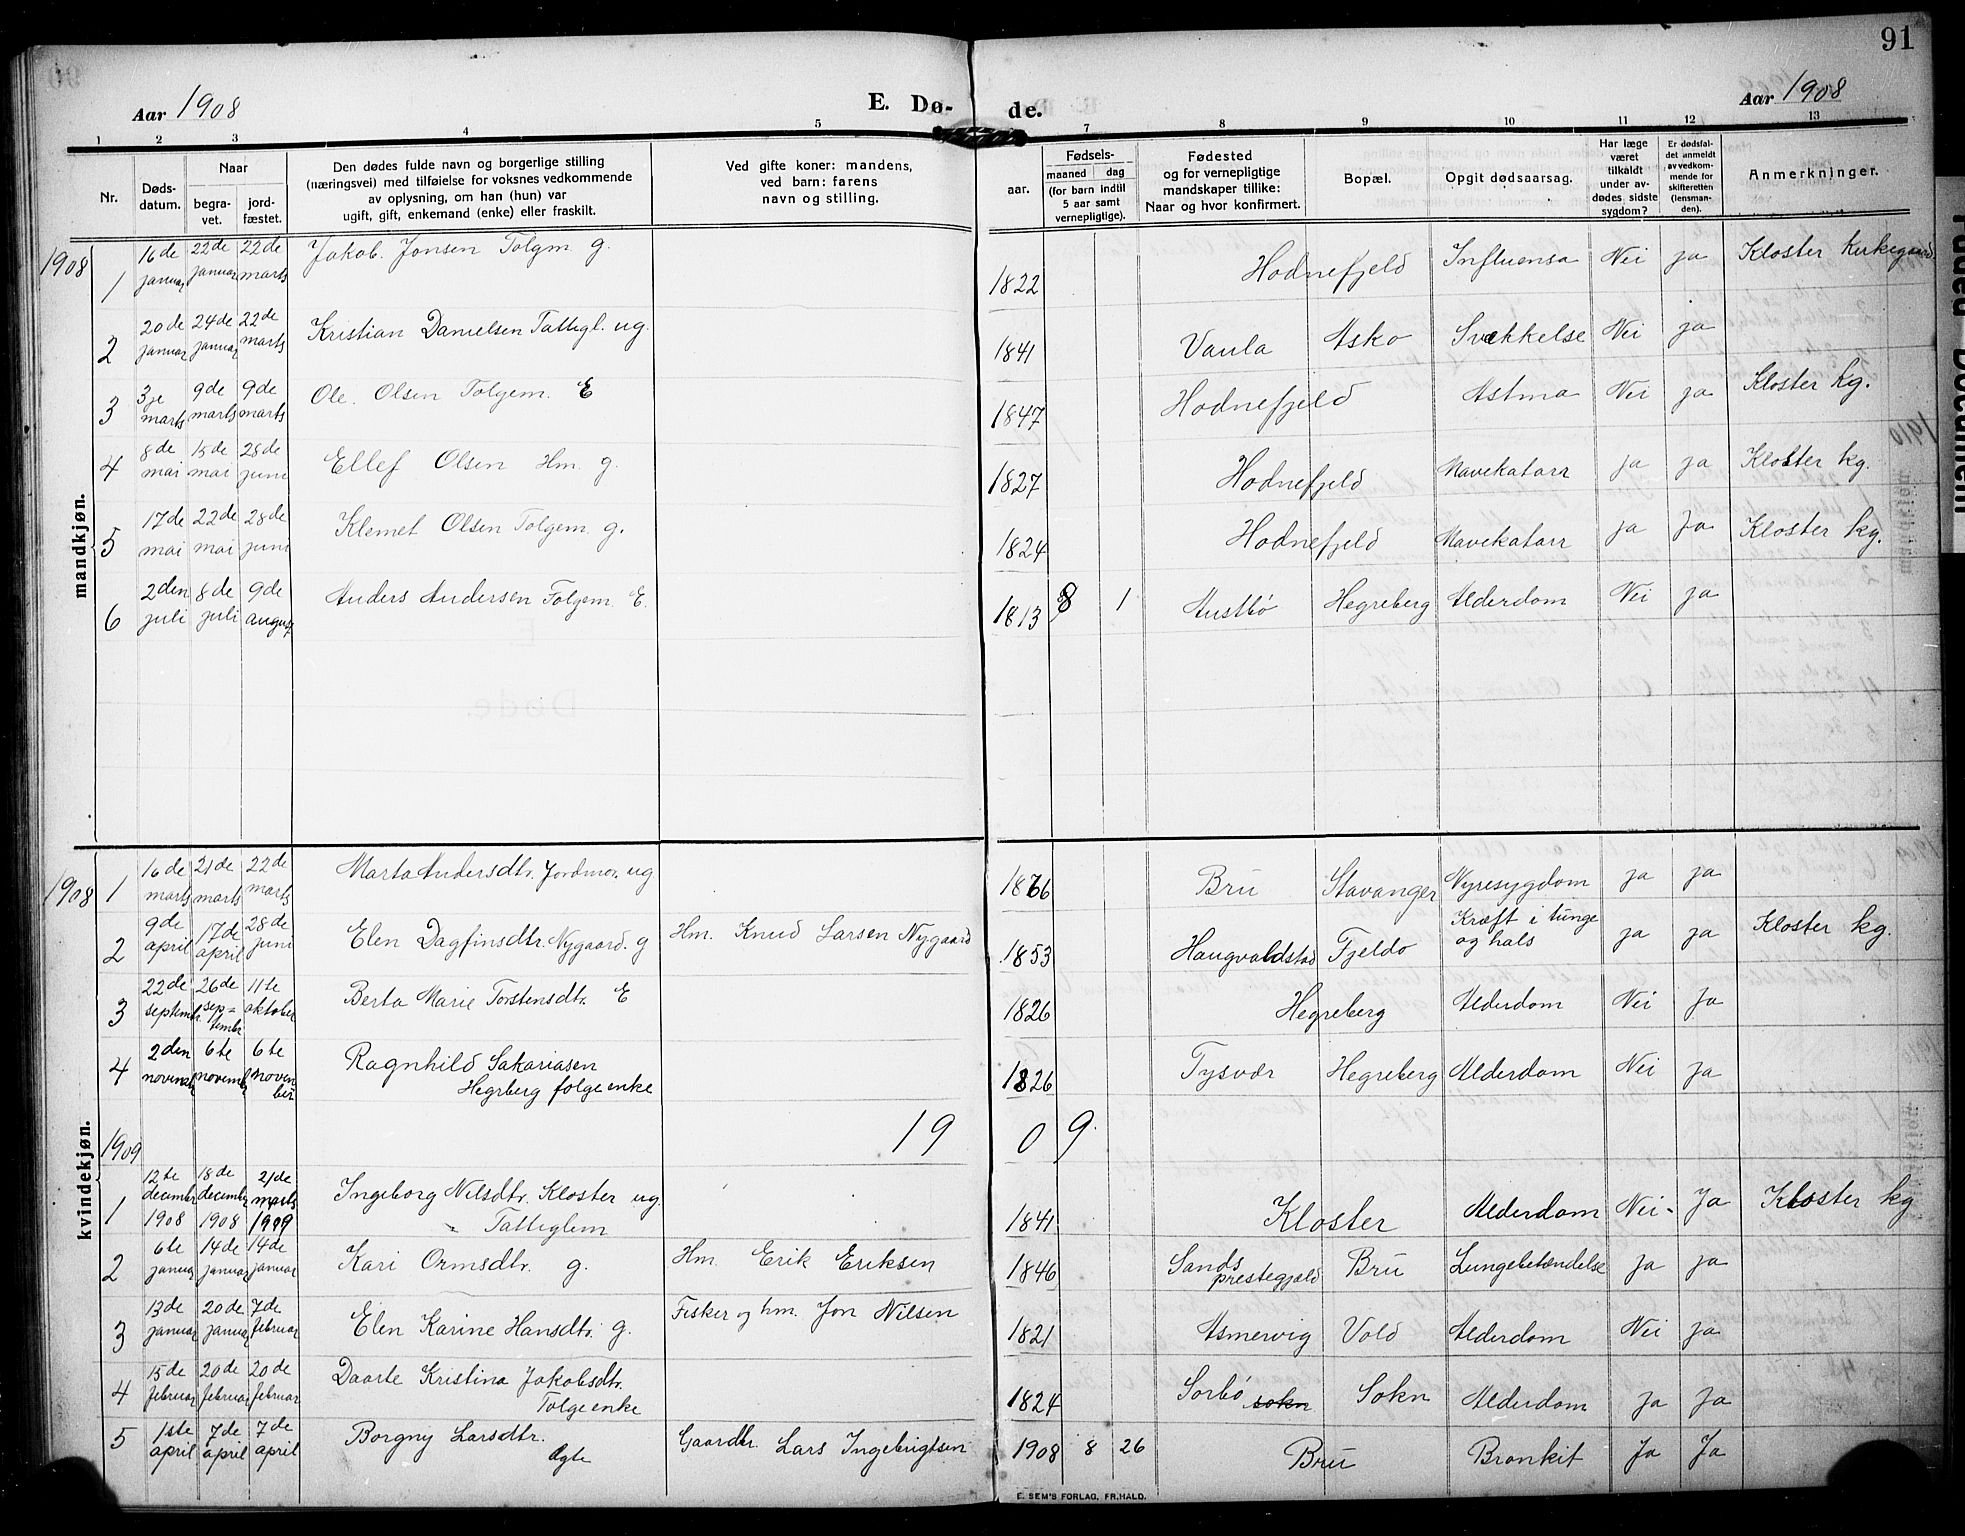 91
Aar 1908
E. Dø-
de.
Aar 1908
1 2 3 4 5 7 8 9 10 11 12 13
Nr.
Døds-
datum.
Naar
begra-
vet.
jord-
fæstet.
Den dødes fulde navn og borgerlige stilling
(næringsvei) med tilføielse for voksnes vedkommende
av oplysning, om han (hun) var
ugift, gift, enkemand (enke) eller fraskilt.
Ved gifte koner: mandens,
ved barn: farens
navn og stilling.
Fødsels-
aar.
maaned dag
(for barn indtil
5 aar samt
vernepligtige).
Fødested
og for vernepligtige
mandskaper tillike:
Naar og hvor konfirmert.
Bopæl.
Opgit dødsaarsag.
Har læge
været
tilkaldt
under av-
dødes sidste
sygdom?
Er dødsfal-
det anmeldt
av vedkom-
mende for
skifteretten
(lensman-
den).
Anmerkninger.
mandkjøn.
1908 1 16de januar 22de januar 22de marts Jakob Jonsen Tolgm. g. 1822 Hodnefjeld Influensa Nei ja Kloster Kirkegaard
2 20de januar 24de januar 22de marts Kristian Danielsen Tattegl. ug. 1841 Vaula Asko Svekkelse Nei ja
3 3je marts 9de marts 9de marts Ole Olsen Tolgem. E 1847 Hodnefjeld Astma Nei ja Kloster kg.
4 8de mai 15de mai 28de juni Ellef Olsen Hm. g. 1827 Hodnefjeld Mavekatarr ja ja Kloster kg.
5 17de mai 22de mai 28de juni Klemet Olsen Tolgem g. 1824 Hodnefjeld Mavekatarr ja Ja Kloster kg.
6 2den juli 8de juli 9de august Anders Andersen Folgem. E. 1813 8 1 Austbø Hegreberg Alderdom Nei ja
kvindekjøn.
1908 1 16de marts 21de marts 22de marts Marta Andersdtr. Jordmor. ug 1866 Bru Stavanger Nyresygdom ja ja
2 9de april 17de april 28de juni Elen Dagfinsdtr. Nygaard. g Hm. Knud Larsen Nygaard 1853 Haugvaldstad Fjeldo Kræft i tunge og hals ja ja Kloster kg.
3 22de septembr. 26de sep=tembr. 11te oktober Berta Marie Torstensdtr. E 1826 Hegreberg Alderdom Nei Ja
4 2den novembr 6te novembr 6te novenber Ragnhild Sakariasen
Hegrberg folgeenke 1826 Tysvær Hegreberg Alderdom Nei ja
1909 19 09.
1 12te decembr 1908 18de decembr 1908 21de marts 1909 Ingeborg Nilsdtr. Kloster ug.
Tatteglem 1841 Kloster Alderdom Nei- Ja Kloster kg
2 6te januar 14de januar 14de januar Kari Ormsdtr. g. Hm. Erik Eriksen 1846 Sands prestegjæld Bru Lungebetændelse Ja ja
3 13de januar 20de januar 7de februar Elen Karine Hansdtr. g. Fisker og hm. Jon Nilsen 1821 Asmervig Vold Alderdom Nei ja
4 15de februar 20de februar 20de februar Daarte Kristina Jakobsdtr.
Tolgeenke 1824 Sorbø sokn Sokn Alderdom Ja Ja
5 1ste april 7de april 7de april Borgny Larsdtr.
Ægte Gaardbr. Lars Ingebrigtsen 1908 8 26 Bru Bronkit Ja Ja
E. SEM'S FORLAG, FR.HALD.